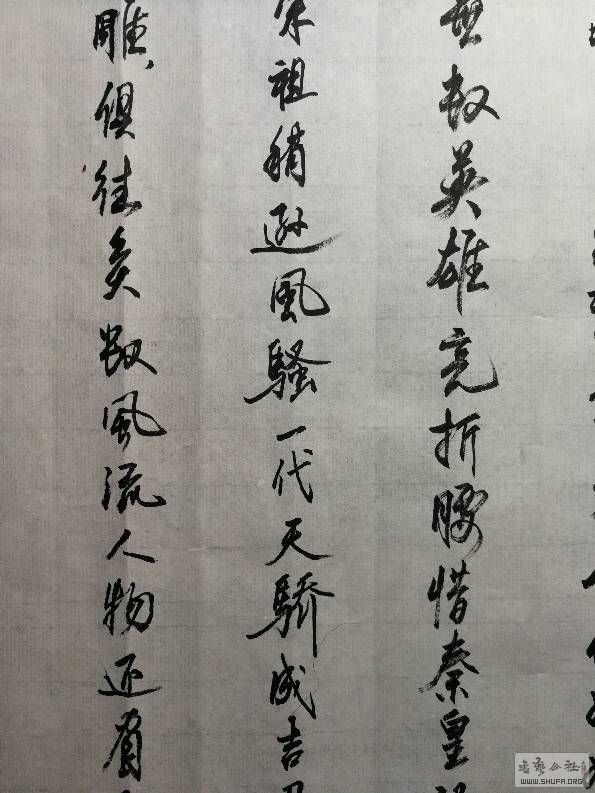 无数英雄竞折腰惜秦皇
宋祖稍逊风骚一代天骄成吉
雕俱往矣数风流人物还看
书艺公社
WWW.SHUFA.ORG